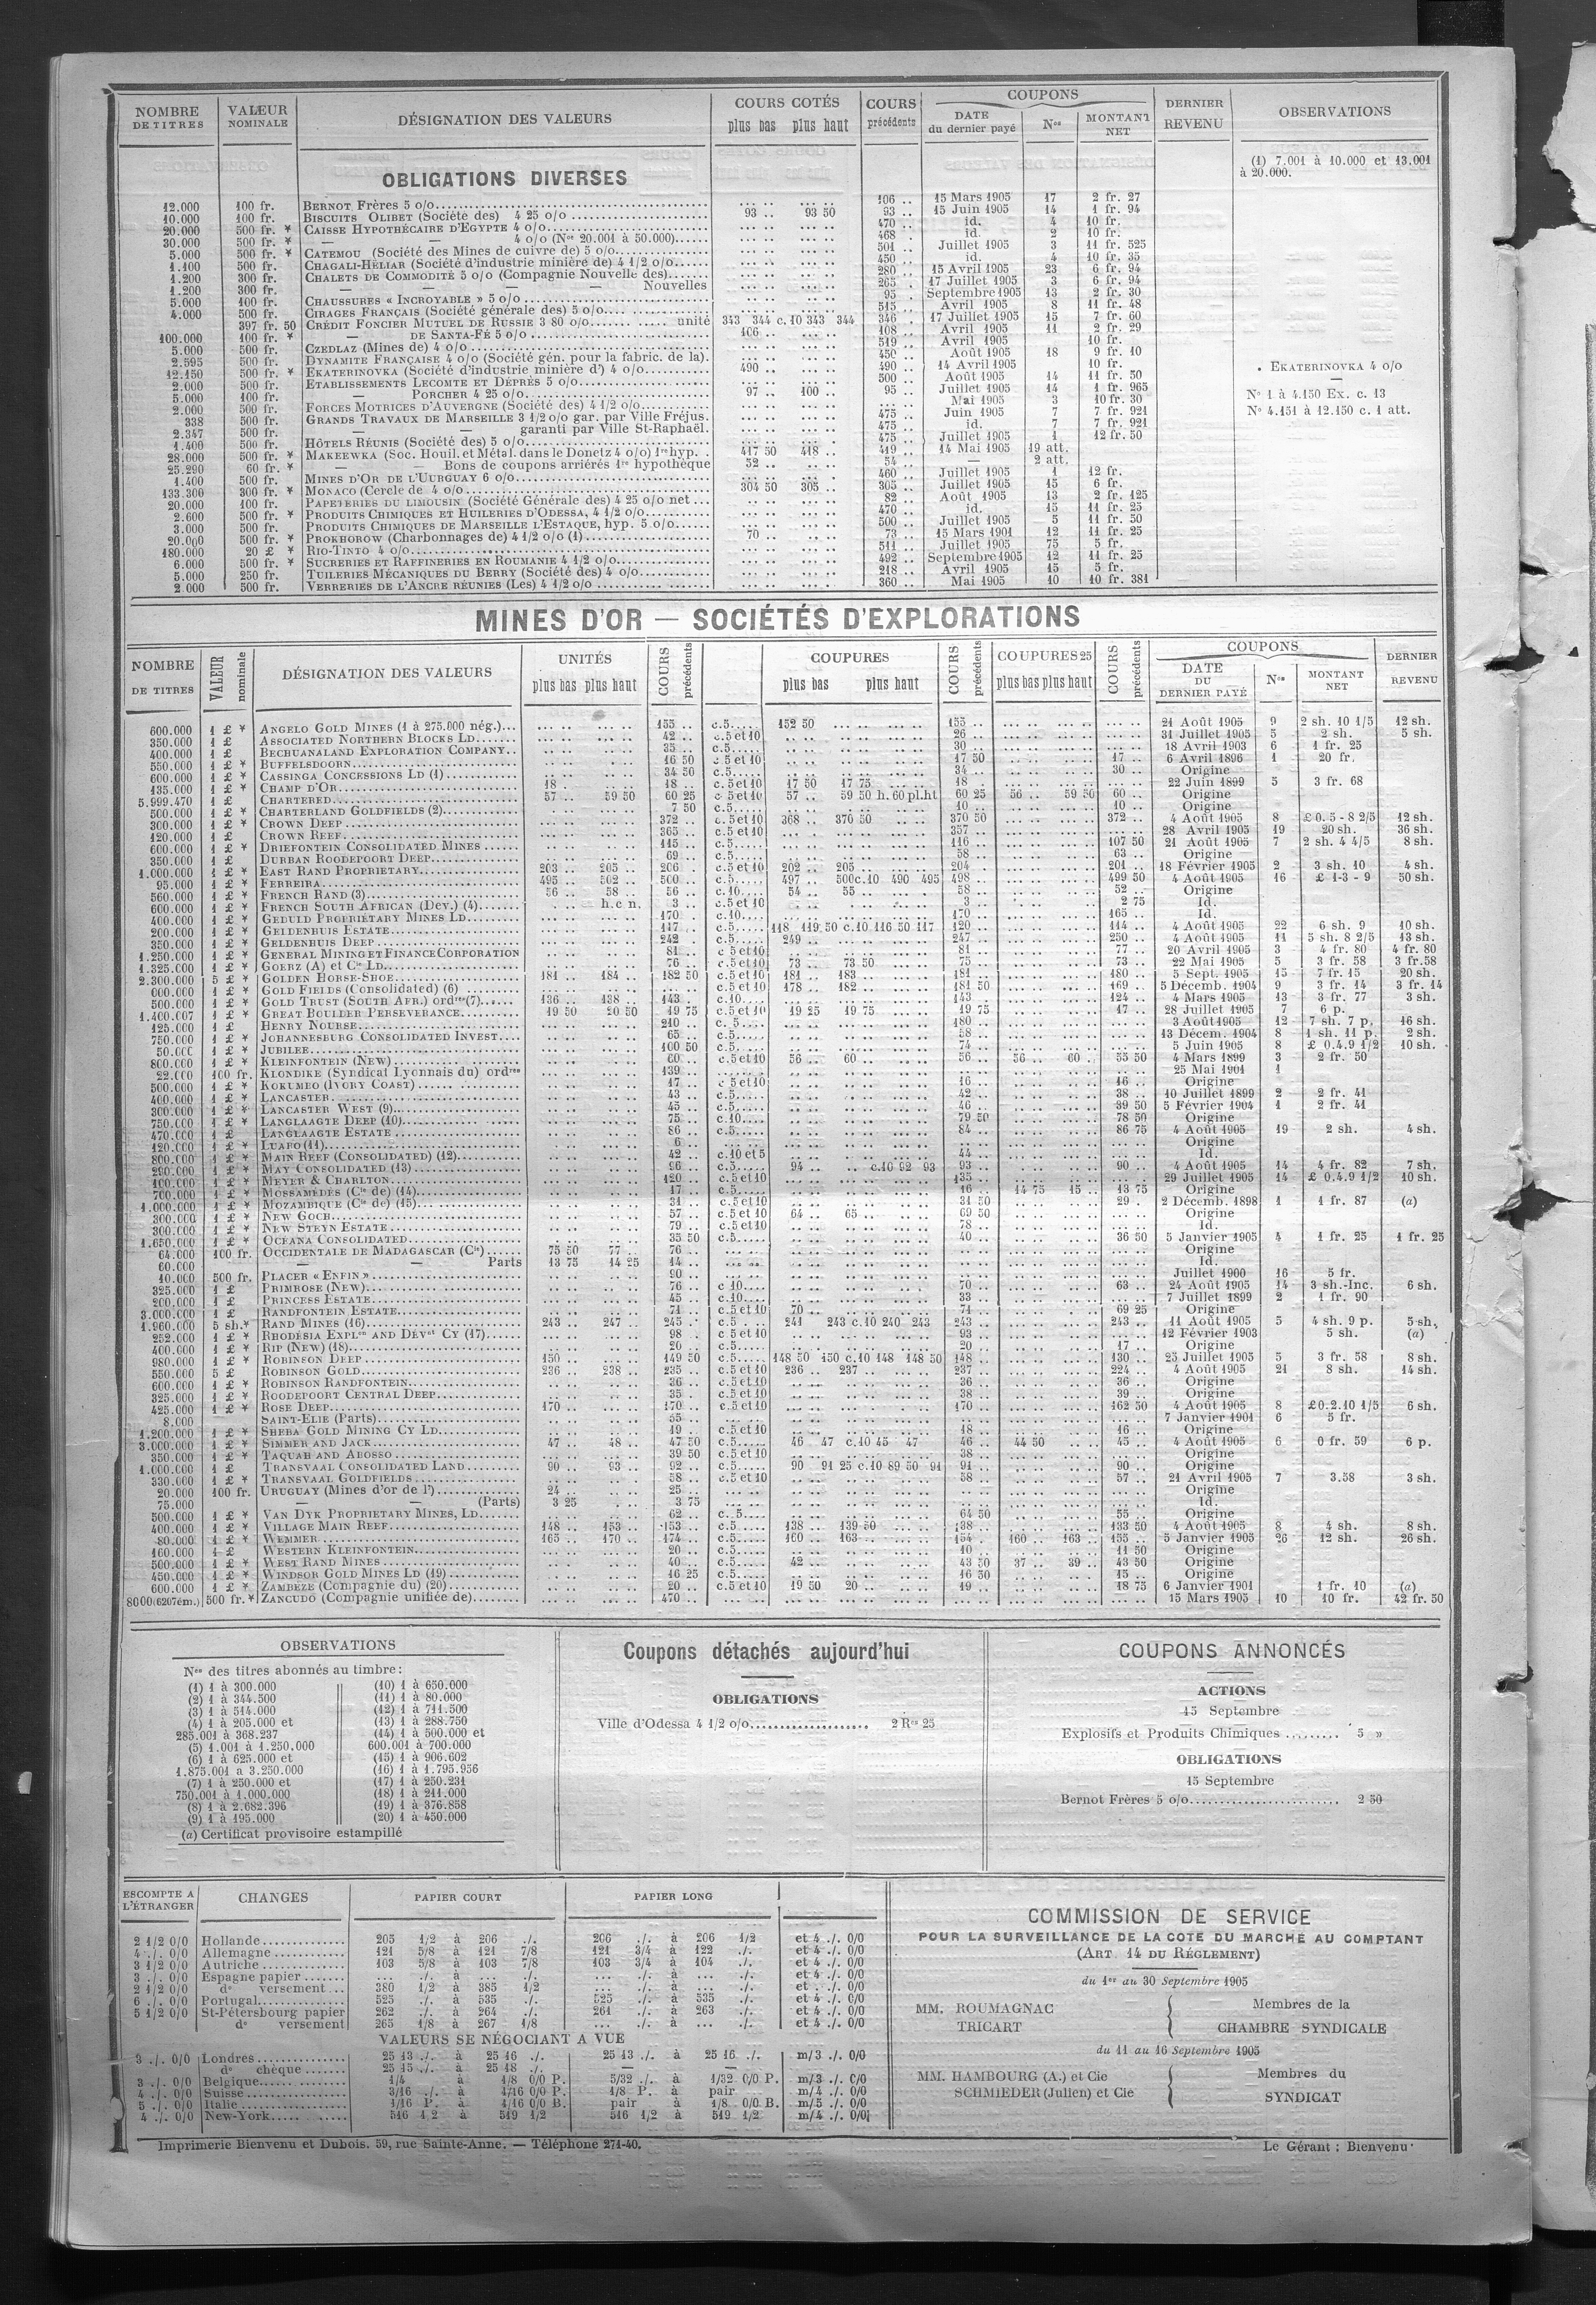 NOMBRE DE TITRES VALEUR NOMINALE DÉSIGNATION DES VALEURS COURS COTÉS plus bas plus haut COURS précédents COUPONS DATE du dernier payé Nos MONTANT NET DERNIER REVENU OBSERVATIONS
(1) 7.001 à 10.000 et 13.001
à 20.000.
OBLIGATIONS DIVERSES
12.000 100 fr. BERNOT Frères 5 o/o 106 .. 15 Mars 1905 17 2 fr. 27
10.000 100 fr. BISCUITS OLIBET (Société des) 4 25 o/o 93 .. 93 50 93 .. 15 Juin 1905 14 1 fr. 94
20.000 500 fr. * CAISSE HYPOTHÉCAIRE D'EGYPTE 4 o/o 470 .. id. 4 10 fr.
30.000 500 fr. * — — 4 o/o (Nos 20.001 à 50.000) 468 . id. 2 10 fr.
5.000 500 fr. * CATEMOU (Société des Mines de cuivre de) 5 o/o 501 .. Juillet 1905 3 11 fr. 525
1.100 500 fr. CHAGALI-HÉLIAR (Société d'industrie minière de) 4 1/2 o/o 450 .. id. 4 10 fr. 35
1.200 300 fr. CHALETS DE COMMODITÉ 5 o/o (Compagnie Nouvelle des) 280 .. 15 Avril 1905 23 6 fr. 94
1.200 300 fr. — — — — Nouvelles 265 .. 17 Juillet 1905 3 6 fr. 94
5.000 100 fr. CHAUSSURES « INCROYABLE » 5 o/o 95 .. Septembre 1905 13 2 fr. 30
4.000 500 fr. CIRAGES FRANÇAIS (Société générale des) 5 o/o 515 .. Avril 1905 8 11 fr. 48
397 fr. 50 CRÉDIT FONCIER MUTUEL DE RUSSIE 3 80 o/o unité 343 344 c.10 343 344 346 .. 17 Juillet 1905 15 7 fr. 60
100.000 100 fr. * — DE SANTA-FÉ 5 o/o 106 .. 108 .. Avril 1905 11 2 fr. 29
5.000 500 fr. CZEDLAZ (Mines de) 4 o/o 519 .. Avril 1905 10 fr.
2.595 500 fr. DYNAMITE FRANÇAISE 4 o/o (Société gén. pour la fabric. de la). 450 .. Août 1905 18 9 fr. 10
12.150 500 fr. * EKATERINOVKA (Société d'industrie minière d') 4 o/o 490 .. 490 .. 14 Avril 1905 10 fr.
2.000 500 fr. ETABLISSEMENTS LECOMTE ET DÉPRÈS 5 o/o 500 .. Août 1905 14 11 fr. 50
5.000 100 fr. — PORCHER 4 25 o/o 97 .. 100 .. 95 .. Juillet 1905 14 1 fr. 965
2.000 500 fr. FORCES MOTRICES D'AUVERGNE (Société des) 4 1/2 o/o Mai 1905 3 10 fr. 30
338 500 fr. GRANDS TRAVAUX DE MARSEILLE 3 1/2 o/o gar. par Ville Fréjus. 475 .. Juin 1905 7 7 fr. 921
2.347 500 fr. — — garanti par Ville St-Raphaël. 475 .. id. 7 7 fr. 921
1.400 500 fr. HÔTELS RÉUNIS (Société des) 5 o/o 475 .. Juillet 1905 1 12 fr. 50
28.000 500 fr. * MAKEEWKA (Soc. Houil. et Métal. dans le Donetz 4 o/o) 1re hyp. 417 50 418 .. 419 .. 14 Mai 1905 19 att.
25.290 60 fr. * — — Bons de coupons arriérés 1re hypothèque 52 .. 54 .. — 2 att.
1.400 500 fr. MINES D'OR DE L'UURGUAY 6 o/o 460 .. Juillet 1905 1 12 fr.
133.300 300 fr. * MONACO (Cercle de 4 o/o 304 50 305 .. 305 .. Juillet 1905 15 6 fr.
20.000 100 fr. PAPETERIES DU LIMOUSIN (Société Générale des) 4 25 o/o net 82 .. Août 1905 13 2 fr. 125
2.600 500 fr. * PRODUITS CHIMIQUES ET HUILERIES D'ODESSA, 4 1/2 o/o 470 .. id. 15 11 fr. 25
3.000 500 fr. PRODUITS CHIMIQUES DE MARSEILLE L'ESTAQUE, hyp. 5 o/o 500 .. Juillet 1905 5 11 fr. 50
20.000 500 fr. * PROKHOROW (Charbonnages de) 4 1/2 o/o (1) 70 .. 73 .. 15 Mars 1901 12 11 fr. 25
180.000 20 £ * RIO-TINTO 4 o/o 511 .. Juillet 1905 75 5 fr.
6.000 500 fr. * SUCRERIES ET RAFFINERIES EN ROUMANIE 4 1/2 o/o 492 .. Septembre 1905 12 11 fr. 25
5.000 250 fr. TUILERIES MÉCANIQUES DU BERRY (Société des) 4 o/o 218 .. Avril 1905 15 5 fr.
2 000 500 fr. VERRERIES DE L'ANCRE RÉUNIES (Les) 4 1/2 o/o 360 .. Mai 1905 10 10 fr. 381
. EKATERINOVKA 4 o/o
—
No 1 à 4.150 Ex. c. 13
No 4.151 à 12.150 c. 1 att.
MINES D'OR — SOCIÉTÉS D'EXPLORATIONS
NOMBRE DE TITRES VALEUR nominale DÉSIGNATION DES VALEURS UNITÉS plus bas plus haut COURS précédents COUPURES plus bas plus haut COURS précédents COUPURES 25 plus bas plus haut COURS précédents COUPONS DATE DU DERNIER PAYÉ Nos MONTANT NET DERNIER REVENU
600.000 1 £ * ANGELO GOLD MINES (1 à 275.000 nég.) 155 .. c.5 152 50 155 .. 21 Août 1905 9 2 sh. 10 1/5 12 sh.
350.000 1 £ ASSOCIATED NORTHERN BLOCKS LD 42 .. c.5 et 10 26 .. 31 Juillet 1905 5 2 sh. 5 sh.
400.000 1 £ BECHUANALAND EXPLORATION COMPANY 35 .. c.5 30 .. 18 Avril 1903 6 1 fr. 25
550.000 1 £ * BUFFELSDOORN 16 50 c.5 et 10 17 50 17 .. 6 Avril 1896 1 20 fr.
600.000 1 £ * CASSINGA CONCESSIONS LD (1) 34 50 c.5 34 .. 30 .. Origine
135.000 1 £ * CHAMP D'OR 18 .. 18 .. c.5 et 10 17 50 17 75 18 .. 22 Juin 1899 5 3 fr. 68
5.999.470 1 £ CHARTERED 57 .. 59 50 60 25 c 5 et 10 57 .. 59 50 h. 60 pl.ht 60 25 56 .. 59 50 60 .. Origine
500.000 1 £ * CHARTERLAND GOLDFIELDS (2) 7 50 c.5 10 .. 10 .. Origine
300.000 1 £ * CROWN DEEP 372 .. c.5 et 10 368 .. 370 50 370 50 372 .. 4 Août 1905 8 £ 0.5-8 2/5 12 sh.
120.000 1 £ CROWN REEF 365 .. c.5 et 10 357 .. 28 Avril 1905 19 20 sh. 36 sh.
600.000 1 £ * DRIEFONTEIN CONSOLIDATED MINES 115 .. c.5 116 .. 107 50 21 Août 1905 7 2 sh. 4 4/5 8 sh.
350.000 1 £ DURBAN ROODEPOORT DEEP 69 .. c.5 58 .. 63 .. Origine
1.000.000 1 £ * EAST RAND PROPRIETARY 203 .. 205 .. 206 . c.5 et 10 202 .. 205 .. 204 .. 201 .. 18 Février 1905 2 3 sh. 10 4 sh.
95.000 1 £ * FERREIRA 495 .. 502 .. 500 .. c.5 497 .. 500 c.10 490 495 498 499 50 4 Août 1905 16 £ 1-3-9 50 sh.
560.000 1 £ * FRENCH RAND (3) 56 .. 58 .. 56 .. c.10 54 .. 55 .. 58 .. 52 .. Origine
600.000 1 £ * FRENCH SOUTH AFRICAN (Dev.) (4) h.c n. 3 .. c.5 et 10 3 .. 2 75 Id.
400.000 1 £ * GEDULD PROPRIETARY MINES LD 170 .. c.10 170 .. 165 .. Id.
200.000 1 £ * GELDENHUIS ESTATE 117 .. c.5 118 119 50 c.10 116 50 117 120 .. 114 .. 4 Août 1905 22 6 sh. 9 10 sh.
350.000 1 £ * GELDENHUIS DEEP 242 . c.5 249 .. 247 .. 250 .. 4 Août 1905 11 5 sh. 8 2/5 13 sh.
1.250.000 1 £ * GENERAL MINING ET FINANCE CORPORATION 81 .. c 5 et 10 81 .. 77 .. 20 Avril 1905 3 4 fr. 80 4 fr. 80
1.325.000 1 £ * GOERZ (A) et Cie LD 76 .. c.5 et 10 73 .. 73 50 75 .. 73 .. 22 Mai 1905 5 3 fr. 58 3 fr. 58
2.300.000 5 £ * GOLDEN HORSE-SHOE 181 .. 184 .. 182 50 c.5 et 10 181 .. 183 .. 181 .. 180 .. 5 Sept. 1905 15 7 fr. 15 20 sh.
600.000 1 £ * GOLD FIELDS (Consolidated) (6) c.5 et 10 178 .. 182 .. 181 50 169 .. 5 Décemb. 1904 9 3 fr. 14 3 fr. 14
500.000 1 £ * GOLD TRUST (SOUTH AFR.) ordres (7) 136 .. 138 .. 143 . c.10 143 .. 124 .. 4 Mars 1905 13 3 fr. 77 3 sh.
1.400.007 1 £ * GREAT BOULDER PERSEVERANCE 19 50 20 50 19 75 c.5 et 10 19 25 19 75 19 75 17 .. 28 Juillet 1905 7 6 p.
125.000 1 £ HENRY NOURSE 210 .. c. 5 180 .. 3 Août 1905 12 7 sh. 7 p. 16 sh.
750.000 1 £ * JOHANNESBURG CONSOLIDATED INVEST. 65 .. c.5 58 .. 13 Décem. 1904 8 1 sh. 11 p. 2 sh.
50.000 1 £ * JUBILEE 100 50 c.5 74 .. 5 Juin 1905 8 £ 0.4.9 1/2 10 sh.
800.000 1 £ * KLEINFONTEIN (NEW) 60 .. c.5 et 10 56 .. 60 .. 56 .. 56 .. 60 .. 55 50 4 Mars 1899 3 2 fr. 50
22.000 100 fr. KLONDIKE (Syndicat Lyonnais du) ordres 139 .. 25 Mai 1901 1
500.000 1 £ * KOKUMBO (IVORY COAST) 17 .. c 5 et 10 16 .. 16 .. Origine
400.000 1 £ * LANCASTER 43 .. c.5 42 .. 38 .. 10 Juillet 1899 2 2 fr. 41
300.000 1 £ * LANCASTER WEST (9) 45 .. c.5 46 .. 39 50 5 Février 1904 1 2 fr. 41
750.000 1 £ * LANGLAAGTE DEEP (10) 75 .. c.10 79 50 78 50 Origine
470.000 1 £ LANGLAAGTE ESTATE 86 .. c.5 84 .. 86 75 4 Août 1905 19 2 sh. 4 sh.
120.000 1 £ * LUAPO (11) 6 .. Origine
800.000 1 £ * MAIN REEF (CONSOLIDATED) (12) 42 .. c.10 et 5 44 .. Id.
290.000 1 £ * MAY CONSOLIDATED (13) 96 .. c.5 94 .. c.10 92 93 93 .. 90 .. 4 Août 1905 14 4 fr. 82 7 sh.
100.000 1 £ * MEYER & CHARLTON 120 .. c.5 et 10 135 .. 29 Juillet 1905 14 £ 0.4.9 1/2 10 sh.
700.000 1 £ * MOSSAMÉDÈS (Cie de) (14) 17 .. c.5 16 .. 14 75 15 .. 13 75 Origine
1.000.000 1 £ * MOZAMBIQUE (Cie de) (15) 31 .. c.5 et 10 31 50 29 . 2 Décemb. 1898 1 1 fr. 87 (a)
300.000 1 £ * NEW GOCH 57 .. c.5 et 10 64 .. 65 .. 69 50 Origine
300.000 1 £ * NEW STEYN ESTATE 79 .. c.5 et 10 78 .. Id.
1.650.000 1 £ * OCEANA CONSOLIDATED 35 50 c.5 40 .. 36 50 5 Janvier 1905 4 1 fr. 25 1 fr. 25
64.000 100 fr. OCCIDENTALE DE MADAGASCAR (Cie) 75 50 77 .. 76 .. Origine
60.000 — — Parts 13 75 14 25 14 .. Id.
10.000 500 fr. PLACER « ENFIN » 90 .. Juillet 1900 16 5 fr.
325.000 1 £ PRIMROSE (NEW) 76 .. c 10 70 .. 63 .. 24 Août 1905 14 3 sh.-Inc. 6 sh.
200.000 1 £ PRINCESS ESTATE 45 .. c.10 33 .. 7 Juillet 1899 2 1 fr. 90
3.000.000 1 £ RANDFONTEIN ESTATE 71 .. c.5 et 10 70 .. 71 .. 69 25 Origine
1.960.000 5 sh. * RAND MINES (16) 243 .. 247 .. 245 . c.5 241 243 c.10 240 243 243 .. 243 .. 11 Août 1905 5 4 sh. 9 p. 5 sh.
252.000 1 £ * RHODÉSIA EXPLon AND DÉVnt CY (17) 98 . c.5 et 10 93 .. 12 Février 1903 5 sh. (a)
400.000 1 £ * RIP (NEW) (18) 20 .. c.5 20 .. 17 .. Origine
980.000 1 £ * ROBINSON DEEP 150 .. 149 50 c.5 148 50 150 c.10 148 148 50 148 .. 130 .. 25 Juillet 1905 5 3 fr. 58 8 sh.
550.000 5 £ ROBINSON GOLD 236 .. 238 .. 235 .. c.5 et 10 236 .. 237 .. 237 224 .. 4 Août 1905 21 8 sh. 14 sh.
600.000 1 £ * ROBINSON RANDFONTEIN 36 .. c.5 et 10 36 .. 36 .. Origine
325.000 1 £ * ROODEPOORT CENTRAL DEEP 35 . c.5 et 10 38 .. 39 .. Origine
425.000 1 £ * ROSE DEEP 170 .. 170 .. c.5 et 10 170 .. 162 50 4 Août 1905 8 £0.2.10 1/5 6 sh.
8.000 SAINT-ELIE (Parts) 55 .. 7 Janvier 1901 6 5 fr.
1.200.000 1 £ * SHEBA GOLD MINING CY LD 19 .. c.5 et 10 18 .. 16 .. Origine
3.000.000 1 £ * SIMMER AND JACK 47 .. 48 .. 47 50 c.5 46 47 c.10 45 47 46 .. 44 50 45 .. 4 Août 1905 6 0 fr. 59 6 p.
350.000 1 £ * TAQUAH AND ABOSSO 39 50 c.5 et 10 38 .. Origine
1.000.000 1 £ TRANSVAAL CONSOLIDATED LAND 90 .. 93 .. 92 .. c.5 90 91 25 c.10 89 50 91 91 .. 90 .. Origine
330.000 1 £ * TRANSVAAL GOLDFIELDS 58 .. c.5 et 10 58 .. 57 .. 21 Avril 1905 7 3.58 3 sh.
20.000 100 fr. URUGUAY (Mines d'or de l') 24 .. 25 .. Origine
75.000 — — (Parts) 3 25 3 75 Id.
500.000 1 £ * VAN DYK PROPRIETARY MINES, LD 62 .. c. 5 64 50 55 .. Origine
400.000 1 £ * VILLAGE MAIN REEF 148 .. 153 .. 153 .. c.5 138 .. 139 50 138 .. 133 50 4 Août 1905 8 4 sh. 8 sh.
80.000 1 £ * WEMMER 165 .. 170 .. 174 .. c.5 160 .. 163 .. 154 . 160 .. 163 .. 155 .. 5 Janvier 1905 26 12 sh. 26 sh.
160.000 1 £ WESTERN KLEINFONTEIN 20 .. c.5 10 .. 11 50 Origine
500.000 1 £ * WEST RAND MINES 40 .. c.5 42 .. 43 50 37 .. 39 .. 43 50 Origine
450.000 1 £ * WINDSOR GOLD MINES LD (19) 16 25 c.5 16 50 15 .. Origine
600.000 1 £ * ZAMBÈZE (Compagnie du) (20) 20 .. c.5 et 10 19 50 20 .. 19 .. 18 75 6 Janvier 1901 1 fr. 10 (a)
8000 (6207 ém.) 500 fr. * ZANCUDO (Compagnie unifiée de) 470 .. 15 Mars 1905 10 10 fr. 42 fr. 50
OBSERVATIONS
Nos des titres abonnés au timbre :
(1) 1 à 300.000
(2) 1 à 344.500
(3) 1 à 514.000
(4) 1 à 205.000 et
285.001 à 368.237
(5) 1.001 à 1.250.000
(6) 1 à 625.000 et
1.875.001 a 3.250.000
(7) 1 à 250.000 et
750.001 à 1.000.000
(8) 1 à 2.682.396
(9) 1 à 195.000
(10) 1 à 650.000
(11) 1 à 80.000
(12) 1 à 711.500
(13) 1 à 288.750
(14) 1 à 500.000 et
600.001 à 700.000
(15) 1 à 906.602
(16) 1 à 1.795.956
(17) 1 à 250.231
(18) 1 à 211.000
(19) 1 à 376.858
(20) 1 à 450.000
(a) Certificat provisoire estampillé
Coupons détachés aujourd'hui
OBLIGATIONS
Ville d'Odessa 4 1/2 o/o 2 Res 25
COUPONS ANNONCÉS
ACTIONS
15 Septembre
Explosifs et Produits Chimiques 5 »
OBLIGATIONS
15 Septembre
Bernot Frères 5 o/o 2 50
ESCOMPTE A L'ÉTRANGER CHANGES PAPIER COURT PAPIER LONG
2 1/2 0/0 Hollande 205 1/2 à 206 ./. 206 ./. à 206 1/2 et 4 ./. 0/0
4 ./. 0/0 Allemagne 121 5/8 à 121 7/8 121 3/4 à 122 ./. et 4 ./. 0/0
3 1/2 0/0 Autriche 103 5/8 à 103 7/8 103 3/4 à 104 ./. et 4 ./. 0/0
3 ./. 0/0 Espagne papier ... ./. à ... ./. ... ./. à ... ./. et 4 ./. 0/0
2 1/2 0/0 do versement 380 1/2 à 385 1/2 ... ./. à ... ./. et . ./. 0/0
6 ./. 0/0 Portugal 525 ./. à 535 ./. 525 ./. à 535 ./. et 4 ./. 0/0
5 1/2 0/0 St-Pétersbourg papier 262 ./. à 264 ./. 261 ./. à 263 ./. et 4 ./. 0/0
do versement 265 1/8 à 267 1/8 ... ./. à ... ./. et 4 ./. 0/0
VALEURS SE NÉGOCIANT A VUE
3 ./. 0/0 Londres 25 13 ./. à 25 16 ./. 25 13 ./. à 25 16 ./. m/3 ./. 0/0
do chèque 25 15 ./. à 25 18 ./. — —
3 ./. 0/0 Belgique 1/4 à 1/8 0/0 P. 5/32 ./. à 1/32 0/0 P. m/3 ./. 0/0
4 ./. 0/0 Suisse 3/16 ./. à 1/16 0/0 P. 1/8 P. à pair m/4 ./. 0/0
5 ./. 0/0 Italie 1/16 P. à 1/16 0/0 B. pair à 1/8 0/0 B. m/5 ./. 0/0
4 ./. 0/0 New-York 516 1/2 à 519 1/2 516 1/2 à 519 1/2 m/4 ./. 0/0
COMMISSION DE SERVICE
POUR LA SURVEILLANCE DE LA COTE DU MARCHÉ AU COMPTANT
(ART. 14 DU RÉGLEMENT)
du 1er au 30 Septembre 1905
MM. ROUMAGNAC
TRICART
Membres de la
CHAMBRE SYNDICALE
du 11 au 16 Septembre 1905
MM. HAMBOURG (A.) et Cie
SCHMIEDER (Julien) et Cie
Membres du
SYNDICAT
Imprimerie Bienvenu et Dubois. 59, rue Sainte-Anne. — Téléphone 271-40.
Le Gérant : Bienvenu